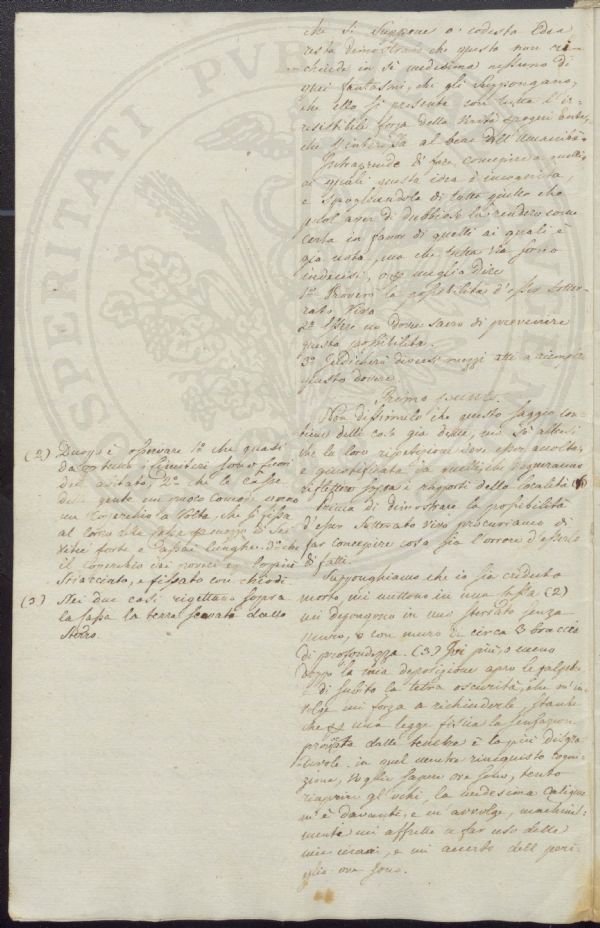 che si suppone a codesta Idea
resta dimostrano che questa non rin-
chiude in se medesima nessuno di
quei fantasmi, che gli suppongano,
che ella si presenta con tutta l'ir-
resistibile forza della Verità
che s'interessa al bene dell'Umanità
Intraprendo di fare concepire a quelli
ai quali questa idea è incognita,
e spogliandola di tutto quello che
puol aver di dubbioso la renderò come
certa in favor di quelli ai quali è
già nota, ma che tutta via sono
indecisi, o p meglio dire
1º Proverò la possibilità d'esser sotter-
rato Vivo
2º Esser un Dovere sacro di prevenire
questa possibilità.
3º Indicherò diversi mezzi atti a riempire
questo dovere
Primo punto.
Non dissimulo che questo saggio con-
tiene delle cose già dette, ma so altresì
che la loro ripetizione deve esser ascoltata,
e giustificata da quelli che vorranno
riflettere sopra i rapporti della località
Prima di dimostrare la possibilità
d'esser sotterrato vivo procuriamo di
far concepire cosa sia l'orrore d'esserlo
di fatti.
Supponghiamo che io sia creduto
morto mi mettono in una cassa (2)
mi depongono in uno sterrato senza
muro, o con muro di circa 3 braccia
di profondezza. (3) Ivi più, o meno
doppo la mia deposizione apro le palpebre
di subito la tetra oscurità, che m'in-
volge mi forza a richiuderle, stante
che p una legge fisica la sensazione
provata dalle tenebre è la più disgra-
devole. in quel mentre riacquisto cogni-
zione, voglio sapere ove sono, tento
riaprire gl'occhi, la medesima caligine
m'è davanti, e m'avvolge, machinal-
mente mi affretto a far uso delle
mie mani, e mi accerto dell peri-
glio ove sono.
(2) Duopo è osservare 1º che quasi
da per tutto i Cimiteri sono fuori
dell'abitato, 2º che le casse
della gente un poco comoda anno
un coperchio a Volta, che si fissa
al corpo della cassa p mezzo di sei
Vitie forte e assai lunghe. 3º che
il coperchio dei poveri è
Stiacciato, e fissato con chiodi
(3) Nei due casi rigettano sopra
la cassa la terra scavata dallo
sterro.